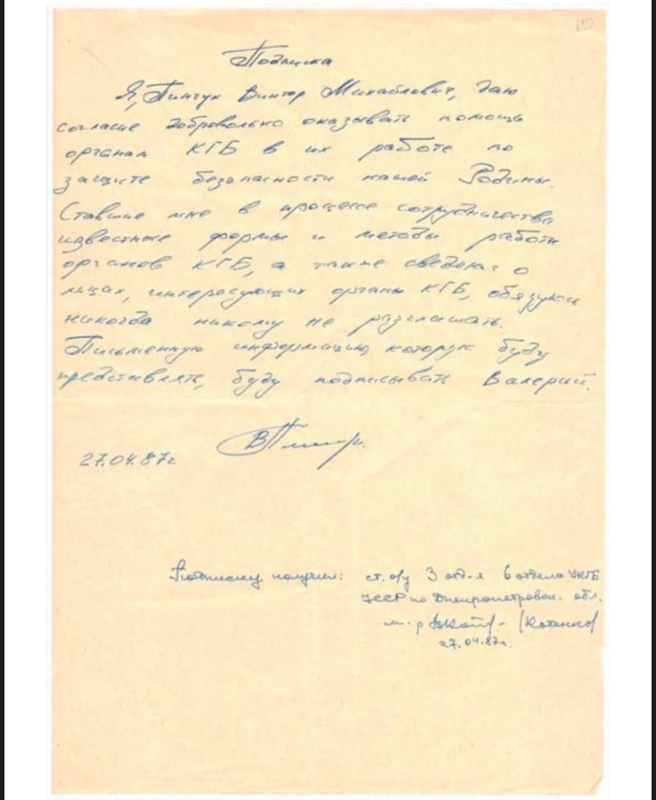 10
Подписка
Я, Пинчук Виктор Михайлович, даю
согласие добровольно оказывать помощь
органам КГБ в их работе по
защите безопасности нашей Родины.
Ставшие мне в процессе сотрудничества
известные формы и методы работы
органов КГБ, а также сведения о
лицах, интересующих органы КГБ, обязуюсь
никогда никому не разглашать.
Письменную информацию, которую буду
представлять, буду подписывать Валерий.
27.04.87г.
Подписку получил: ст. о/у 3 отд-я 6 отдела УКГБ
УССР по Днепропетровск. обл.
м-р
27.04.87г.